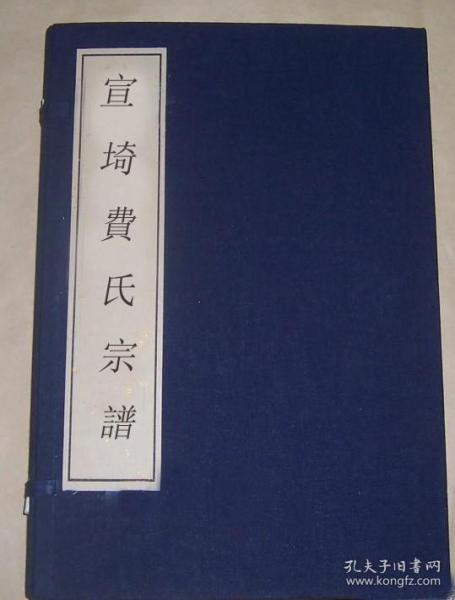 宣埼費氏宗譜
孔夫子旧书网
www.kongfz.com